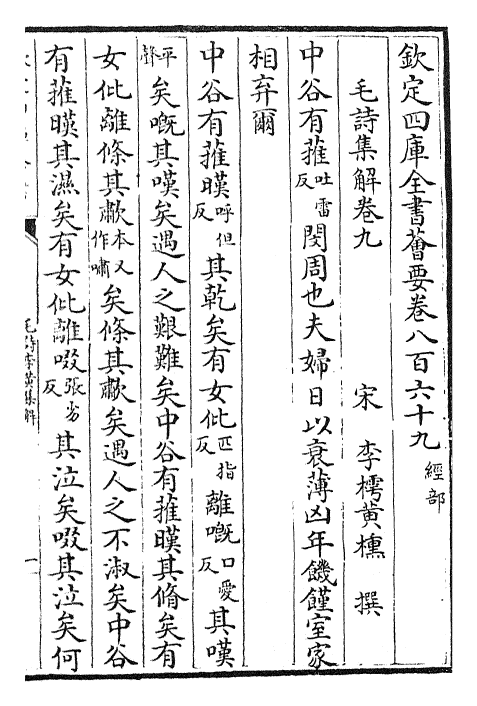 欽定四庫全書薈要卷八百六十九 經部
毛詩集解卷九 宋 李樗黃櫄 撰
中谷有蓷吐雷反閔周也夫婦日以衰薄凶年饑饉室家
相弃爾
中谷有蓷暵呼但反其乾矣有女仳匹指反離嘅口愛反其嘆
平聲矣嘅其嘆矣遇人之艱難矣中谷有蓷暵其脩矣有
女仳離條其歗本又作嘯矣條其歗矣遇人之不淑矣中谷
有蓷暵其濕矣有女仳離啜張劣反其泣矣啜其泣矣何
毛詩李黃集解 一